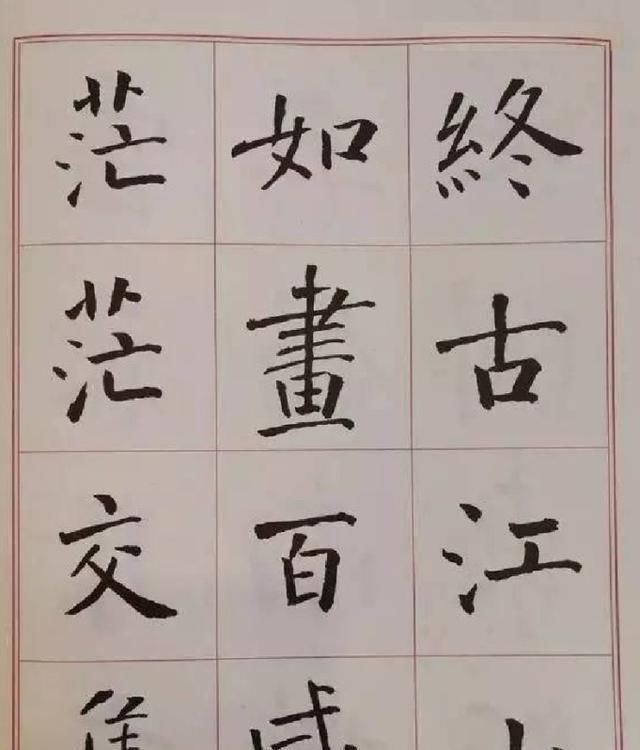 終古江
如畫百
茫茫交